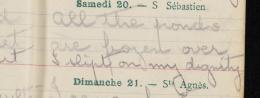 Samedi 20. — S Sébastien.
all the ponds
are frozen over
I slept on my dignity
Dimanche 21. — Ste Agnès.